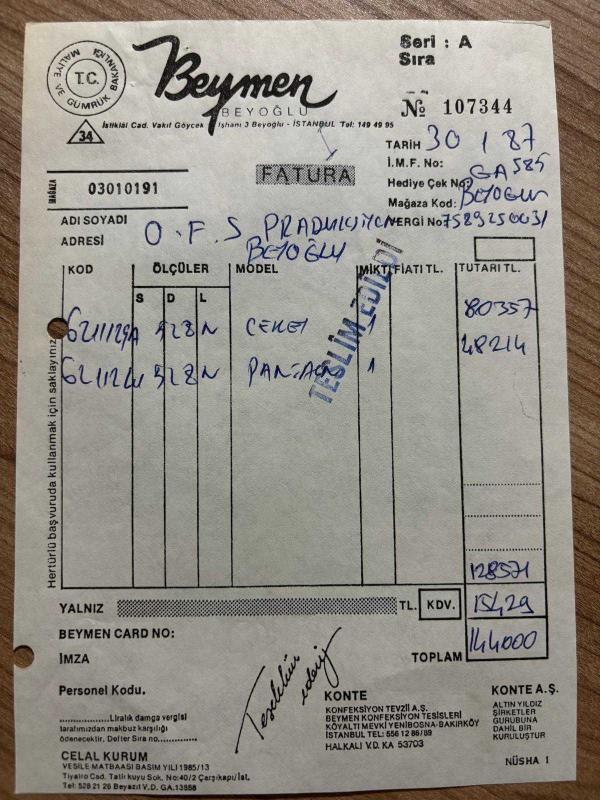 T.C. MALİYE VE GÜMRÜK BAKANLIĞI
34
Beymen
BEYOĞLU
İstiklâl Cad. Vakıf Göyçek İşhanı 3 Beyoğlu - İSTANBUL Tel: 149 49 95
Seri : A
Sıra
№ 107344
FATURA
TARİH 30 / 1 / 87
İ.M.F. No:
Hediye Çek No: GA 585
Mağaza Kod: BEYOĞLU
VERGİ No 7589250031
MAĞAZA 03010191
ADI SOYADI O.F.S
ADRESİ BEYOĞLU
KOD ÖLÇÜLER MODEL MİKT. FİATI TL. TUTARI TL.
S D L
CEKET 1 80357
PANTALON 1 48214
TESLİM EDİLDİ
Hertürlü başvuruda kullanmak için saklayınız
128571
YALNIZ TL. KDV. 15429
TOPLAM 144000
BEYMEN CARD NO:
İMZA
Personel Kodu.
Teslim
..............Liralık damga vergisi
tarafımızdan makbuz karşılığı
ödenecektir. Defter Sıra no..............
CELAL KURUM
VESİLE MATBAASI BASIM YILI 1985/13
Tiyatro Cad. Tatlı kuyu Sok. No:40/2 Çarşıkapı/İst.
Tel: 528 21 26 Beyazıt V.D. GA.13958
KONTE
KONFEKSİYON TEVZİİ A.Ş.
BEYMEN KONFEKSİYON TESİSLERİ
KÖYALTI MEVKİ YENİBOSNA-BAKIRKÖY
İSTANBUL TEL: 556 12 86/89
HALKALI V.D. KA 53703
KONTE A.Ş.
ALTIN YILDIZ
ŞİRKETLER
GURUBUNA
DAHİL BİR
KURULUŞTUR
NÜSHA 1